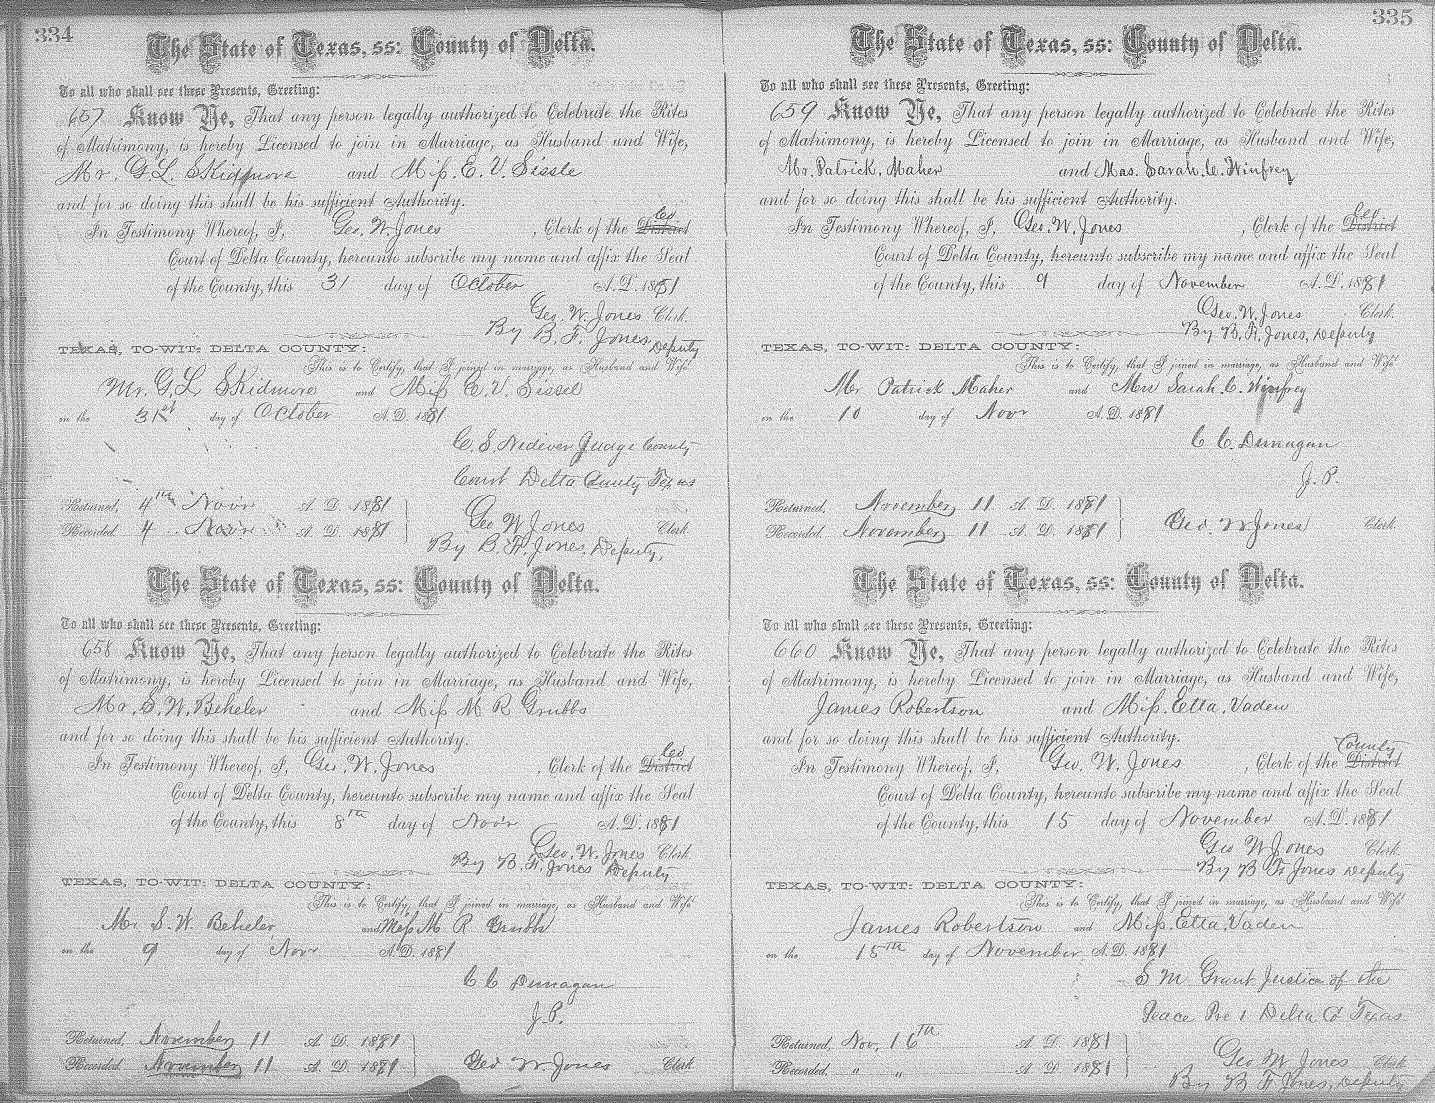 334
The State of Texas, ss: County of Delta.
To all who shall see these Presents, Greeting:
657 Know Ye, That any person legally authorized to Celebrate the Rites
of Matrimony, is hereby Licensed to join in Marriage, as Husband and Wife,
Mr. G L Skidmore and Miss. E. V. Sissle
and for so doing this shall be his sufficient Authority.
In Testimony Whereof, I, Geo. W. Jones, Clerk of the District Co
Court of Delta County, hereunto subscribe my name and affix the Seal
of the County, this 31 day of October A.D. 1881
Geo. W. Jones Clerk.
By B. F. Jones Deputy
TEXAS, TO-WIT: DELTA COUNTY:
This is to Certify, that I joined in marriage, as Husband and Wife
Mr. G L Skidmore and Miss E. V. Sissel
on the 31st day of October A.D. 1881
C. S. Nidever Judge County
Court Delta County Texas
Returned, 4th Nov'r A. D. 1881
Recorded 4 " Nov'r A. D. 1881
Geo W Jones Clerk
By B. F. Jones, Deputy,
The State of Texas, ss: County of Delta.
To all who shall see these Presents, Greeting:
658 Know Ye, That any person legally authorized to Celebrate the Rites
of Matrimony, is hereby Licensed to join in Marriage, as Husband and Wife,
Mr. S. W. Beheler and Miss M R Grubbs
and for so doing this shall be his sufficient Authority.
In Testimony Whereof, I, Geo. W. Jones, Clerk of the District Co
Court of Delta County, hereunto subscribe my name and affix the Seal
of the County, this 8th day of Nov'r A.D. 1881
Geo. W. Jones Clerk
By B. F. Jones Deputy
TEXAS, TO-WIT: DELTA COUNTY:
This is to Certify, that I joined in marriage, as Husband and Wife
Mr S. W. Beheler and Miss M R Grubbs
on the 9 day of Novr A.D. 1881
C C Dunagan
J. P.
Returned, November 11 A. D. 1881
Recorded November 11 A. D. 1881
Geo W. Jones Clerk
335
The State of Texas, ss: County of Delta.
To all who shall see these Presents, Greeting:
659 Know Ye, That any person legally authorized to Celebrate the Rites
of Matrimony, is hereby Licensed to join in Marriage, as Husband and Wife,
Mr. Patrick. Maher and Mrs. Sarah. C. Winfrey
and for so doing this shall be his sufficient Authority.
In Testimony Whereof, I, Geo. W. Jones, Clerk of the District Co
Court of Delta County, hereunto subscribe my name and affix the Seal
of the County, this 9 day of November A.D. 1881
Geo. W. Jones Clerk.
By B. F. Jones, Deputy
TEXAS, TO-WIT: DELTA COUNTY:
This is to Certify, that I joined in marriage, as Husband and Wife
Mr Patrick Maher and Mrs Sarah. C. Winfrey
on the 10 day of Novr A.D. 1881
C C. Dunagan
J. P.
Returned, November 11 A. D. 1881
Recorded. November 11 A. D. 1881
Geo W Jones Clerk
The State of Texas, ss: County of Delta.
To all who shall see these Presents, Greeting:
660 Know Ye, That any person legally authorized to Celebrate the Rites
of Matrimony, is hereby Licensed to join in Marriage, as Husband and Wife,
James Robertson and Miss. Etta. Vaden
and for so doing this shall be his sufficient Authority.
In Testimony Whereof, I, Geo. W. Jones, Clerk of the District County
Court of Delta County, hereunto subscribe my name and affix the Seal
of the County, this 15 day of November A.D. 1881
Geo W Jones Clerk.
By B F Jones Deputy
TEXAS, TO-WIT: DELTA COUNTY:
This is to Certify, that I joined in marriage, as Husband and Wife
James Robertson and Miss. Etta. Vaden
on the 15th day of November A.D. 1881
S M Grant Justice of the
Peace Pre 1 Delta Co Texas
Returned, Nov, 16th A. D. 1881
Recorded. " " A. D. 1881
Geo W Jones Clerk
By B F Jones, Deputy